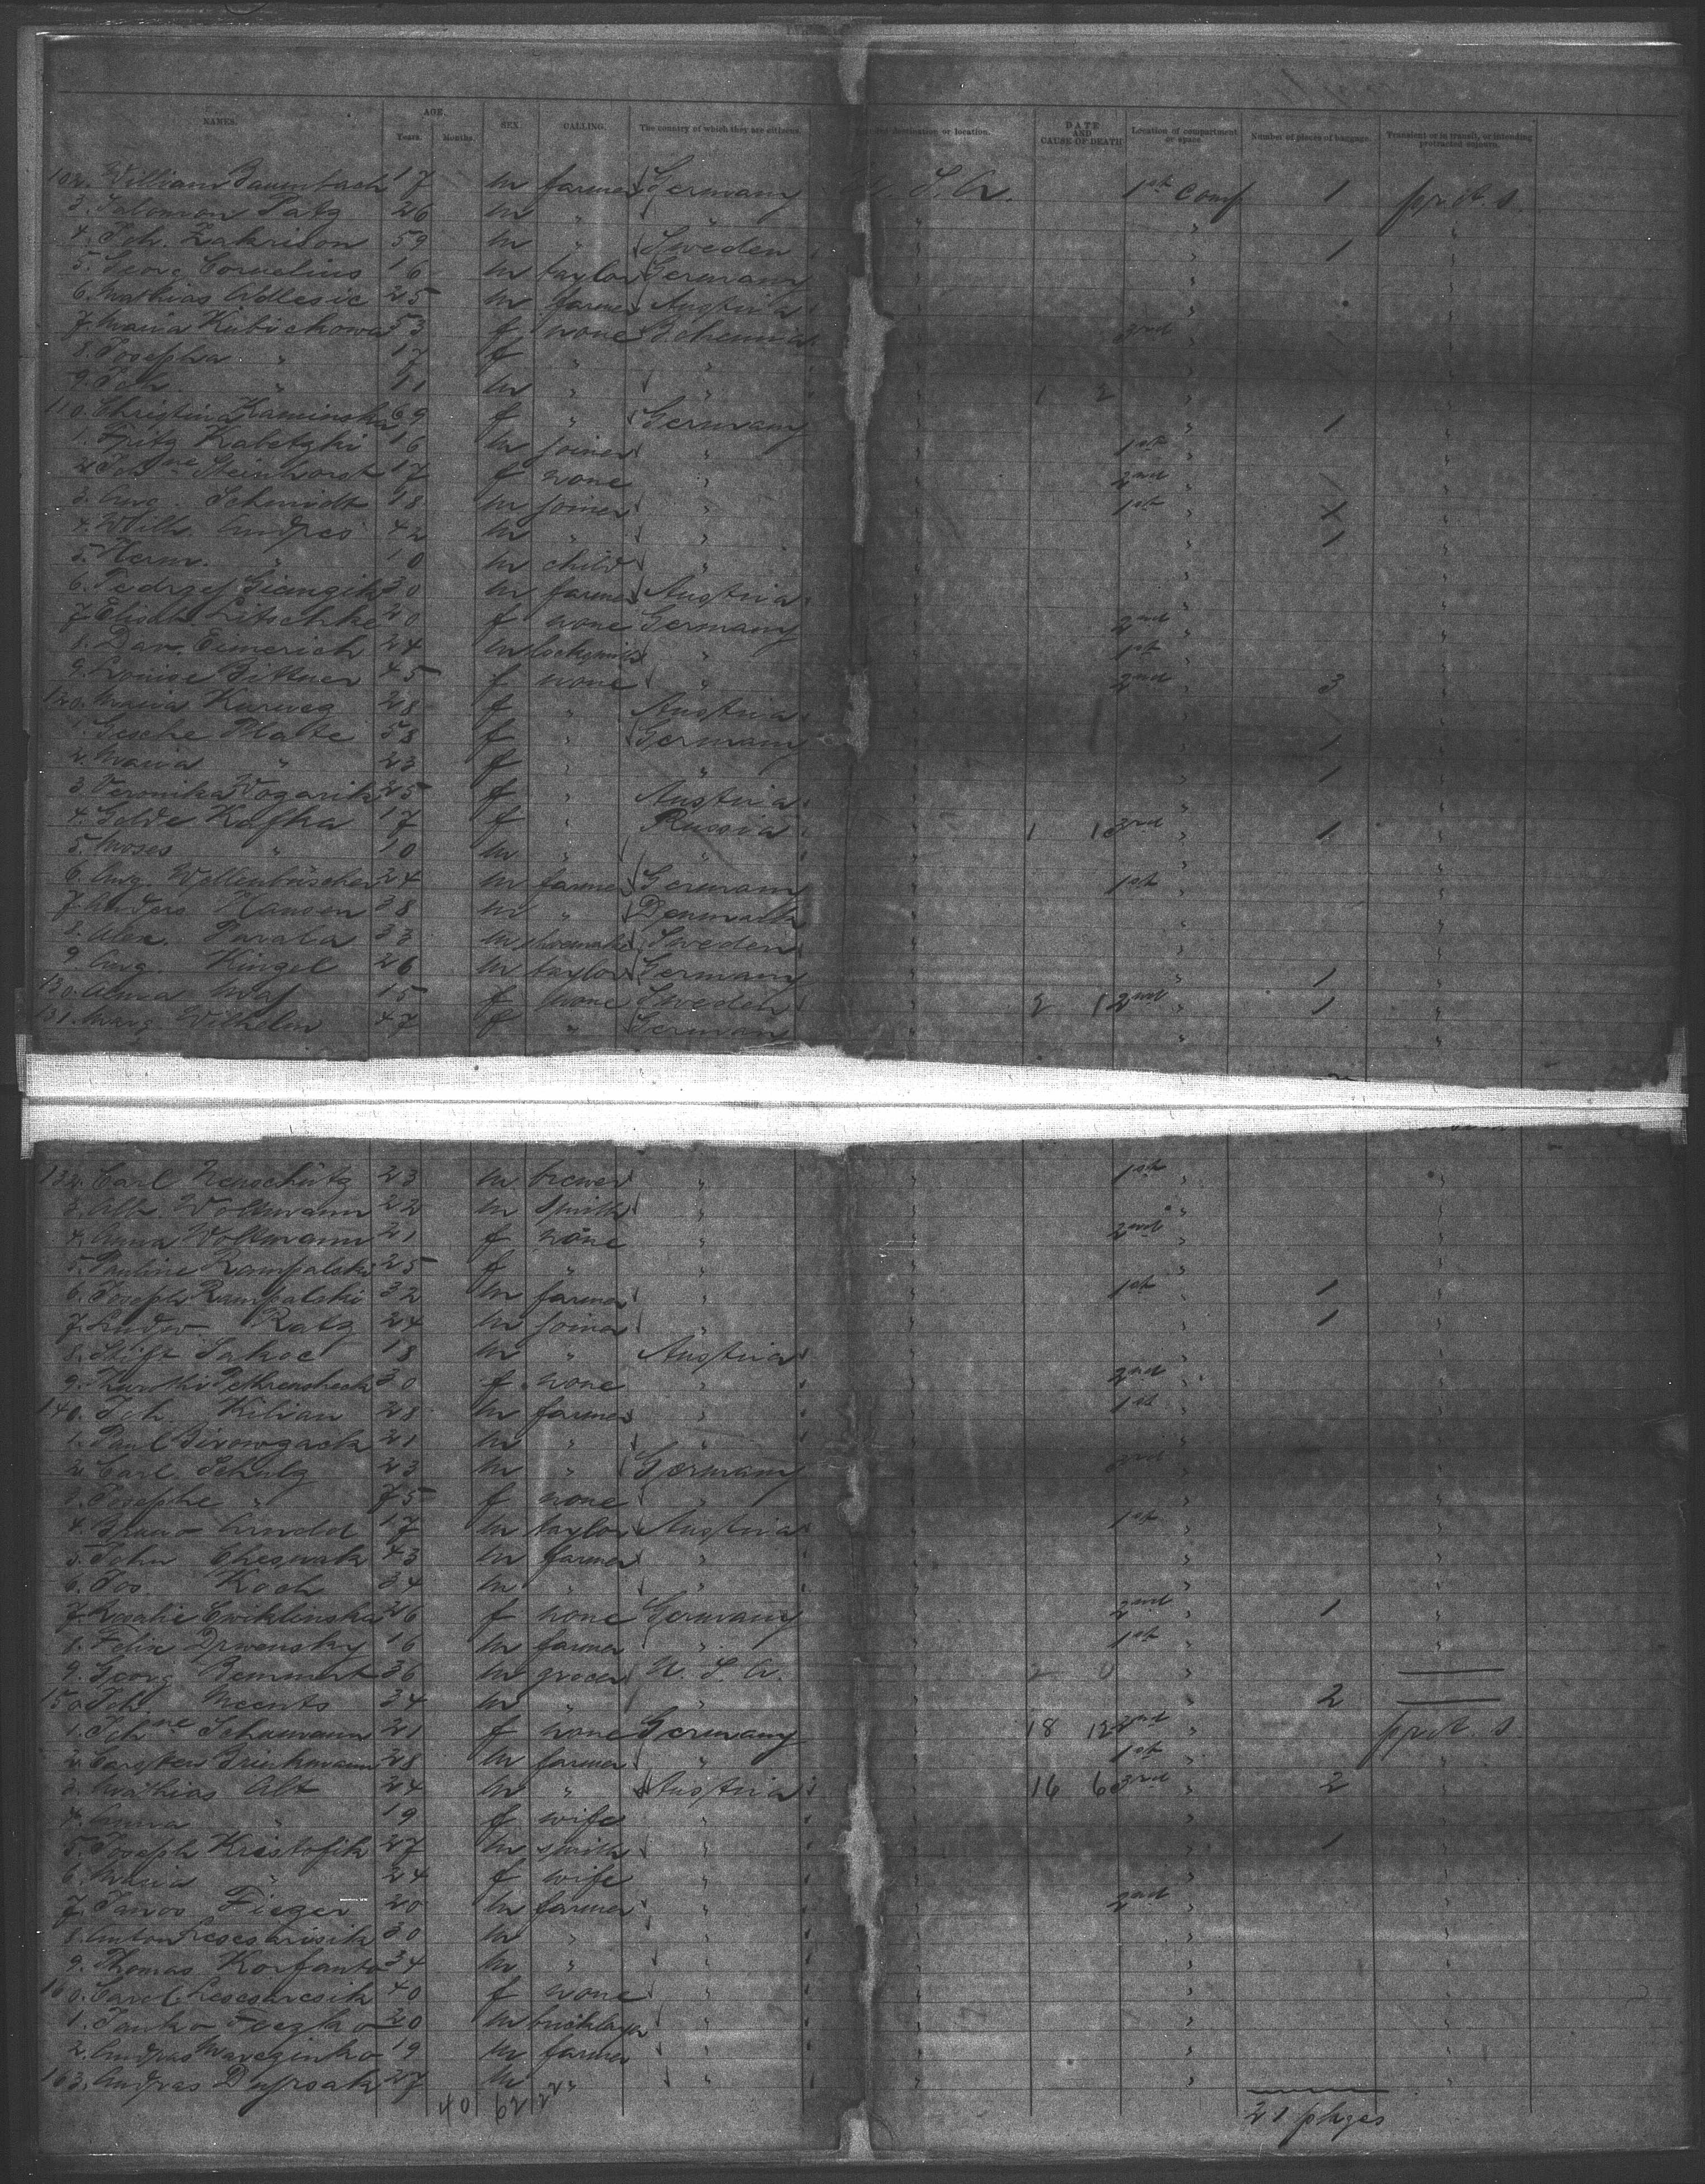 NAMES. AGE. Years. Months. SEX CALLING. The country of which they are citizens. destination or location. DATE AND CAUSE OF DEATH Location of compartment or space. Number of pieces of baggage. Transient or in transit, or intending protracted sojourn.
102. William Baumbach 17 m farmer Germany U. S. A. 1st comp 1 prot. s.
3. Salomon Patz 26 m " " "
4. Joh. Zakrison 59 m " Sweden " 1 "
5. Georg Cornelius 16 m taylor Germany "
6. Mathias Adlesic 25 m farmer Austria "
7. Maria Kubickowa 53 f none Bohemia " 3rd
8. Josepha " 17 f " "
9. Joh. " 11 m " " 1 2 "
110. Christina Kaminska 69 f " Germany " 1 "
1. Fritz Kabetzki 16 m joiner " 1st "
2. Johne Steinhorst 17 f none " 2nd "
3. Aug. Schmidt 18 m joiner " 1st " 1 "
4. Wilh. Andres 42 m " " " 1 "
5. Herm. " 10 m child " "
6. 30 m farmer Austria "
7. Elisab. Litschke 20 f none Germany 2nd "
8. Dan. Eimerich 24 m locksmith " 1st "
9. Louise Bittner 45 f none " 2nd " 3 "
120. Maria Kurweg 28 f " Austria "
1. Gesche Platte 58 f " Germany " 1 "
2. Maria " 23 f " " " 1 "
3. Veronika Vogarik 25 f " Austria "
4. Golde Kafka 17 f " Russia 1 1 3rd " 1 "
5. Moses " 10 m " " "
6. Aug. Wellenbrischer 24 m farmer Germany 1st "
7. Anders Hansen 38 m " Denmark "
8. Alex. Pavala 33 m shoemaker Sweden "
9. Aug. Kingel 26 m taylor Germany " 1 "
130. Alma 15 f none Sweden 2 1 2nd " 1 "
131. Marg. Wilhelm 47 f " German " "
132. Carl Neuschütz 23 m brewer " 1st " "
3. Alb. Wollmann 22 m smith " " "
4. Anna Wollmann 21 f none " 2nd " "
5. Pauline Rampalski 25 f " " " "
6. Joseph Rampalski 32 m farmer " 1st " 1 "
7. Ludw. Ratz 24 m joiner " " 1 "
8. Sakoc 18 m " Austria "
9. 30 f none " 2nd "
140. Joh. Kilian 28 m farmer " 1st "
1. Paul 21 m " " "
2. Carl Schulz 23 m " Germany 2nd "
3. Josephe " 75 f none " "
4. Bruno Arndd 17 m taylor Austria 1st "
5. John 43 m farmer " "
6. Jos. Koch 34 m " " "
7. Rosalie Cwiklinska 26 f none Germany 2nd " 1 "
8. Felix Drwensky 16 m farmer " 1st "
9. Georg 36 m grocer U. S. A. 2 "
150. Joh. Meents 34 m " " " 2
1. Johne Schumann 21 f none Germany 18 12 2nd " prot. s
2. Carsten Brinkmann 28 m farmer " 1st " "
3. Mathias Alt 24 m " Austria 16 6 3rd " 2 "
4. Anna " 19 f wife " " "
5. Joseph Kristofik 27 m smith " " 1 "
6. Maria " 24 f wife " " "
7. Janos Fieger 20 m farmer " 2nd " "
8. Anton 30 m " " " "
9. Thomas Korfanta 34 m " " " "
160. Carol. 40 f none " " "
1. Janko 20 m bricklayer " " "
2. Andras 19 m farmer " " "
163. Andras 27 m " " " "
40 62 21 pkges